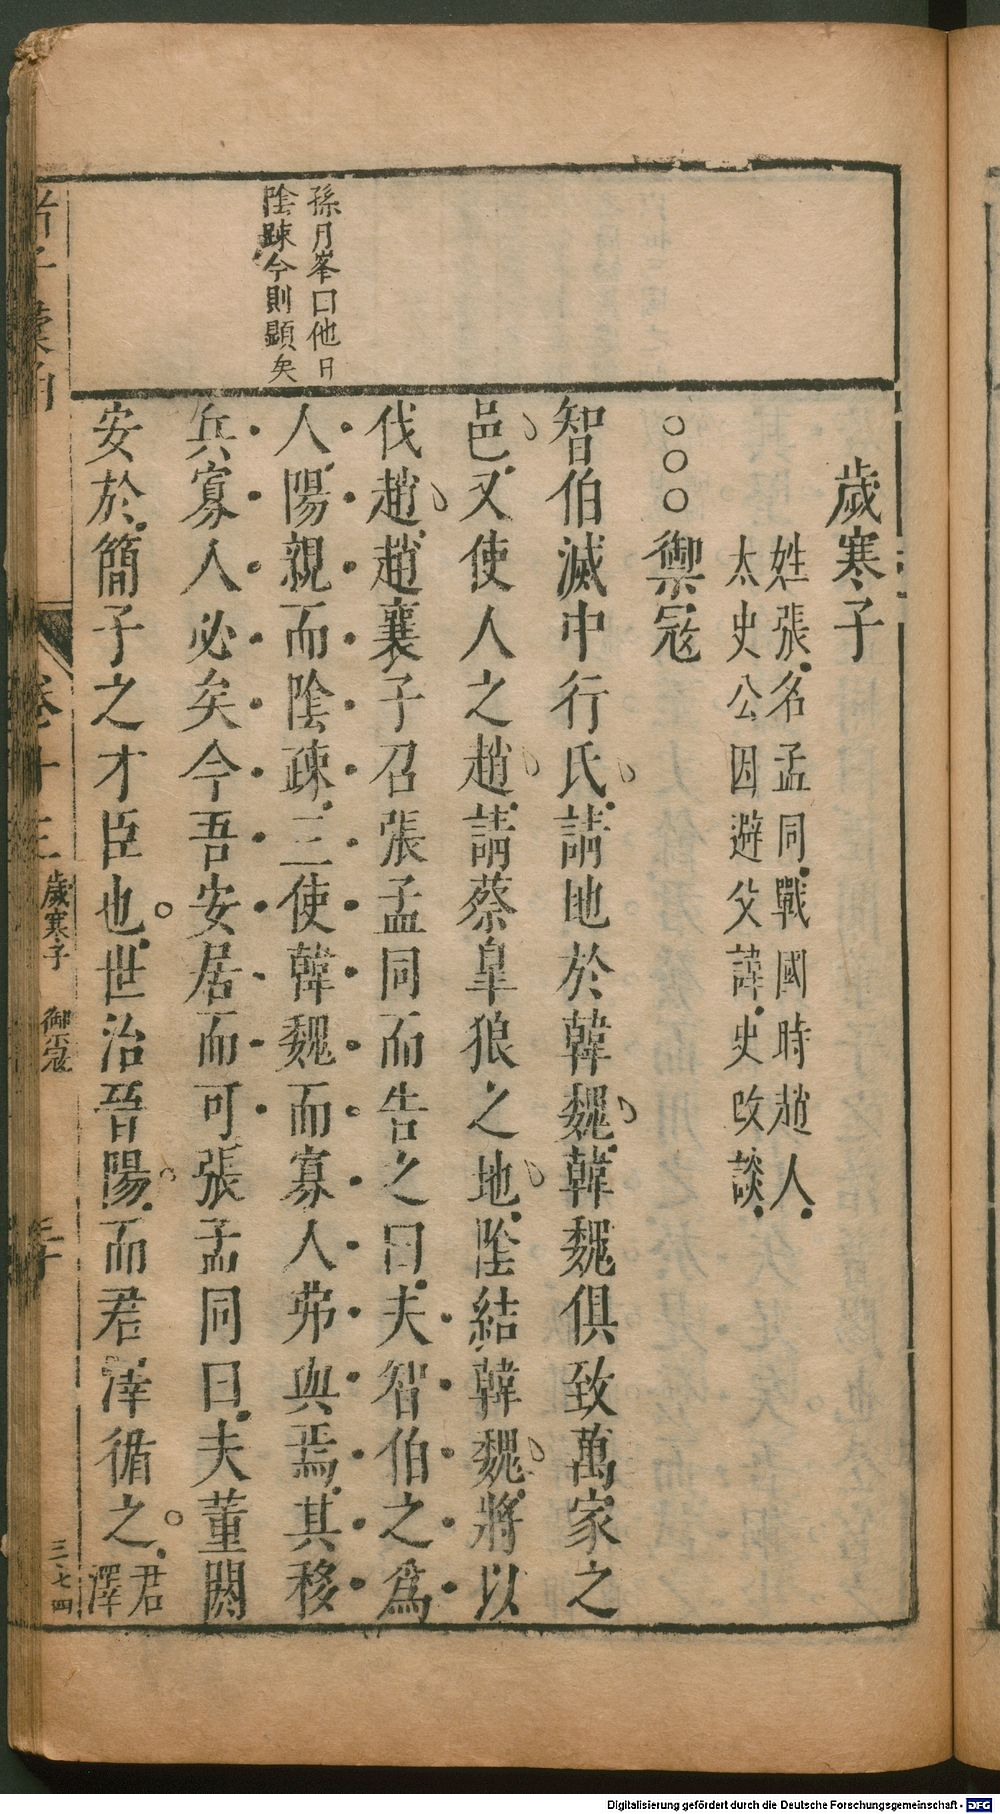 歲寒子
姓張名孟同戰國時趙人
太史公因避父諱史改談
○○○禦寇
智伯滅中行氏請地於韓魏韓魏俱致萬家之
邑又使人之趙請蔡皐狼之地陰結韓魏將以
伐趙趙襄子召張孟同而告之曰夫智伯之爲
人陽親而陰疎三使韓魏而寡人弗與焉其移
兵寡人必矣今吾安居而可張孟同曰夫董閼
安於簡子之才臣也世治晉陽而君澤循之君
澤
孫月峯曰他日
陰疎今則顯矣
卷十三
歲寒子
禦寇
三七四
Digitalisierung gefördert durch die Deutsche Forschungsgemeinschaft - DFG